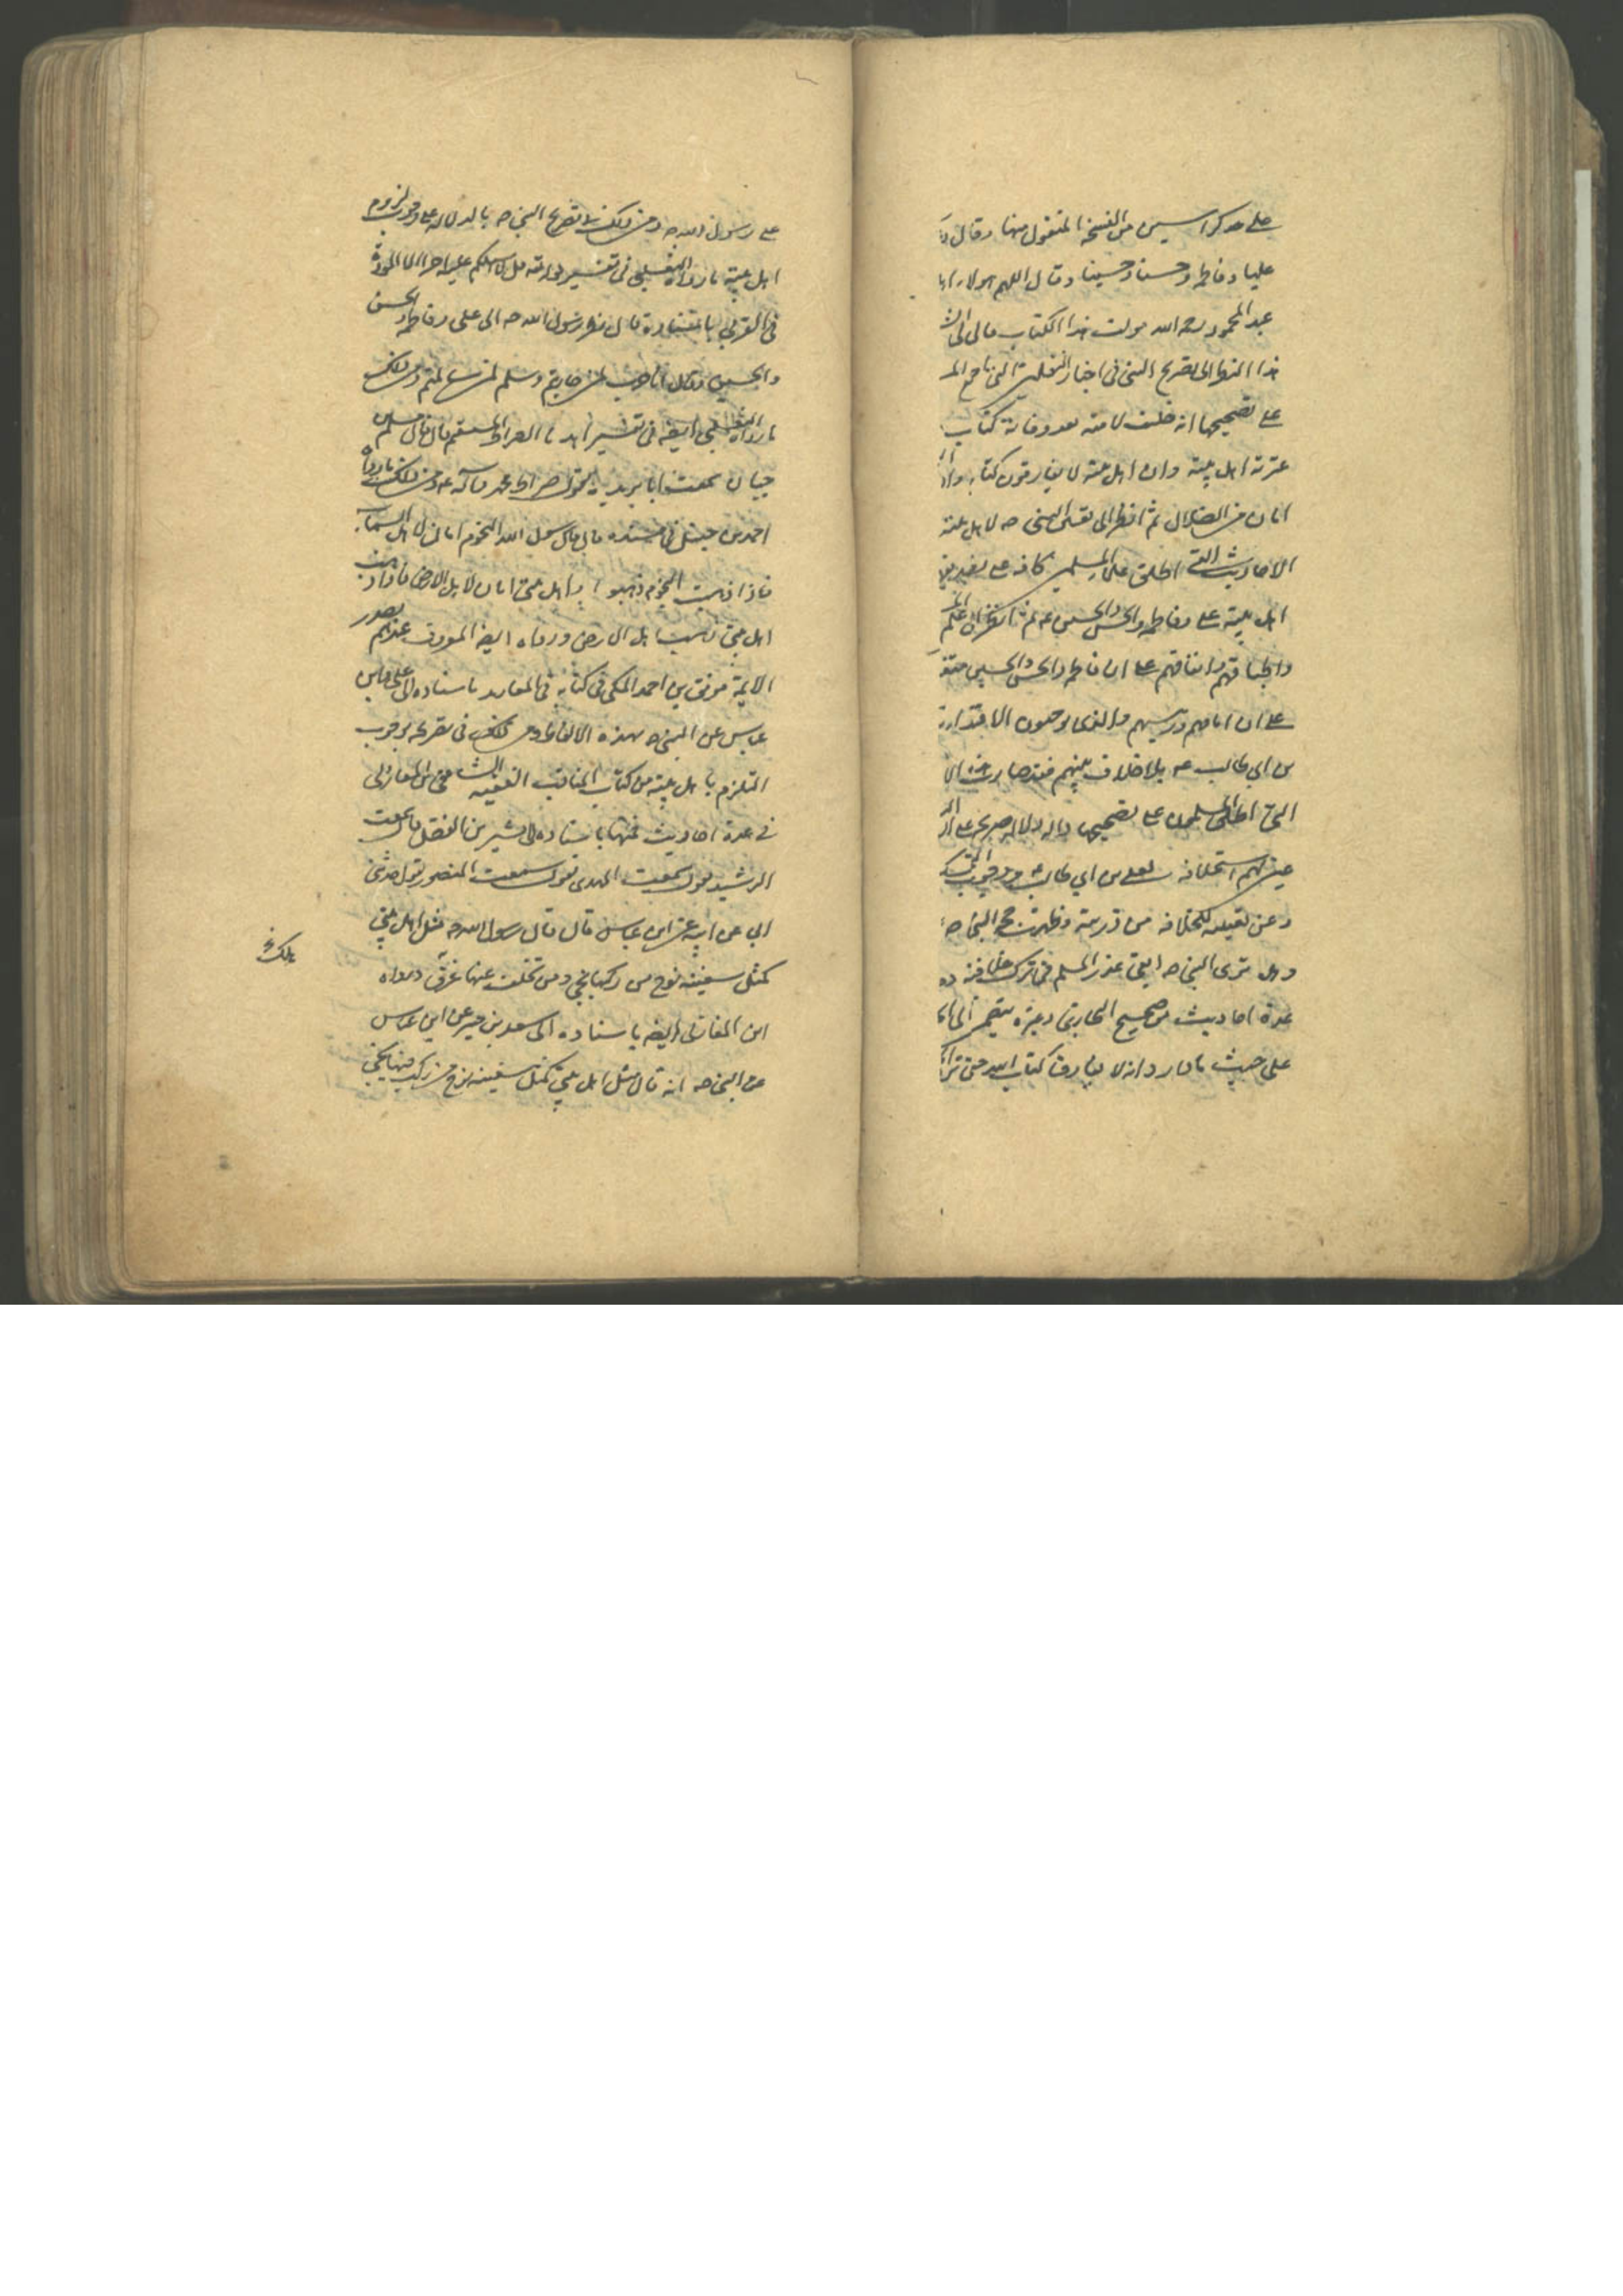 على حد كراسين من النسخة المنقول منها وقال
عليا وفاطمة وحسنا وحسينا وقال اللهم هولاء اهل
عبد المحمود رحمه الله مولف هذا الكتاب
هذا انظر الى تصريح النبي في اخبار الثقلين التي
على تصحيحها انه خلف لامته بعد وفاته كتاب
عترته اهل بيته وان اهل بيته لا يفارقون كتاب
امان من الضلال ثم انظر الى نص النبي صه لاهل بيته
الاحاديث التي اطلق علماء المسلمين كافة على
اهل بيته علي وفاطمة والحسن والحسين عه ثم انظر الى
واطباقهم واتفاقهم على ان فاطمة والحسن والحسين
على ان امامهم ورئيسهم والذي يوجبون الاقتداء به
بن ابي طالب عه بلا خلاف بينهم فقد صارت هذه
التي اطلق المسلمون على تصحيحها دالة دلالة صريحة على
عين لهم استخلافه لعلي بن ابي طالب عه ووجوب التمسك
وعن تعيينه للخلافة من ذريته وظهرت حجج النبي صه
وهل ترى النبي صه ابقى عذرا لمسلم في ترك خلافته
عدة احاديث من صحيح البخاري وغيره يتضمن
على حيث ما دار وانه لا يفارق كتاب الله حتى
على رسول الله صه ومن ذلك في تصريح النبي صه بالدلالة على وجوب لزوم
اهل بيته ما رواه الثعلبي في تفسير قوله تعالى قل لا اسئلكم عليه اجرا الا المودة
في القربى باسناده قال نظر رسول الله صه الى علي وفاطمة والحسن
والحسين وقال انا حرب لمن حاربتم وسلم لمن سالمتم ومن ذلك
ما رواه الثعلبي ايضه في تفسير اهدنا الصراط المستقيم قال قال مسلم
حيان سمعت ابا بريدة يقول صراط محمد وآله عه ومن ذلك ما رواه
احمد بن حنبل في مسنده قال قال رسول الله النجوم امان لاهل السماء
فاذا ذهبت النجوم ذهبوا واهل بيتي امان لاهل الارض فاذا ذهب
اهل بيتي ذهب اهل الارض ورواه ايضه المعروف عندهم بصدر
الايمة موفق بن احمد المكي في كتابه باسناده الى علي وابن
عباس عن النبي صه بهذه الالفاظ ومن ذلك في تصريحه بوجوب
التلزم باهل بيته من كتاب المناقب الفقيه الشافعي ابن المغازلي
في عدة احاديث فمنها باسناده الى بشير بن الفضل قال سمعت
الرشيد يقول سمعت المهدي يقول سمعت المنصور يقول حدثني
ابي عن ابيه عن ابن عباس قال قال رسول الله صه مثل اهل بيتي
كمثل سفينة نوح من ركبها نجي ومن تخلف عنها غرق ورواه
هلك خ
ابن المغازلي ايضه باسناده الى سعيد بن جبير عن ابن عباس
عن النبي صه انه قال مثل اهل بيتي كمثل سفينة نوح من ركب فيها نجي